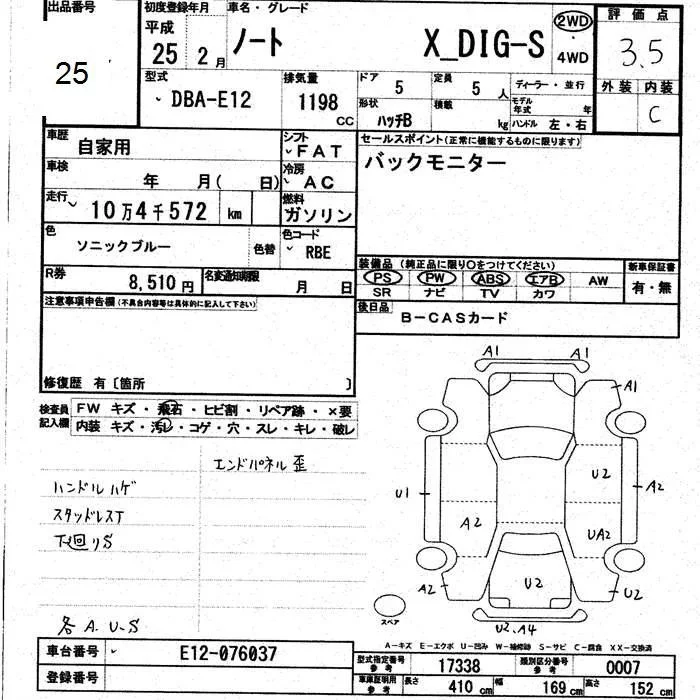 出品番号
25
初度登録年月
平成
25 2 月
車名・グレード
ノート X_DIG-S
2WD
・
4WD
評価点
3.5
外装 内装
C
型式
DBA-E12
排気量
1198 CC
ドア
5
形状
ハッチB
定員
5 人
積載
kg
ディーラー・並行
モデル年式 年
ハンドル 左・右
車歴
自家用
シフト
FAT
車検
年 月( 日)
冷房
AC
走行
10万4千572 km
燃料
ガソリン
色
ソニックブルー
色替
色コード
RBE
R券
8,510円
名変通知期限
月 日
セールスポイント(正常に機能するものに限ります)
バックモニター
装備品 (純正品に限り○をつけてください)
PS PW ABS エアB AW
SR ナビ TV カワ
新車保証書
有・無
後日品
B-CASカード
注意事項申告欄(不具合内容等は具体的に記入して下さい)
修復歴 有〔箇所 〕
検査員記入欄
FW キズ・飛石・ヒビ割・リペア跡・×要
内装 キズ・汚レ・コゲ・穴・スレ・キレ・破レ
エンドパネル歪
ハンドルハゲ
スタッドレスT
下廻りS
各A.U.S
A1 A1
A1
U2
U1 A2
A2 UA2
A2 U2 U2
U2.A4
スペア
A-キズ E-エクボ U-凹み W-補修跡 S-サビ C-腐食 XX-交換済
車台番号
E12-076037
登録番号
型式指定番号 参考
17338
類別区分番号 参考
0007
車庫証明用 参考
長さ 410 cm 幅 169 cm 高さ 152 cm